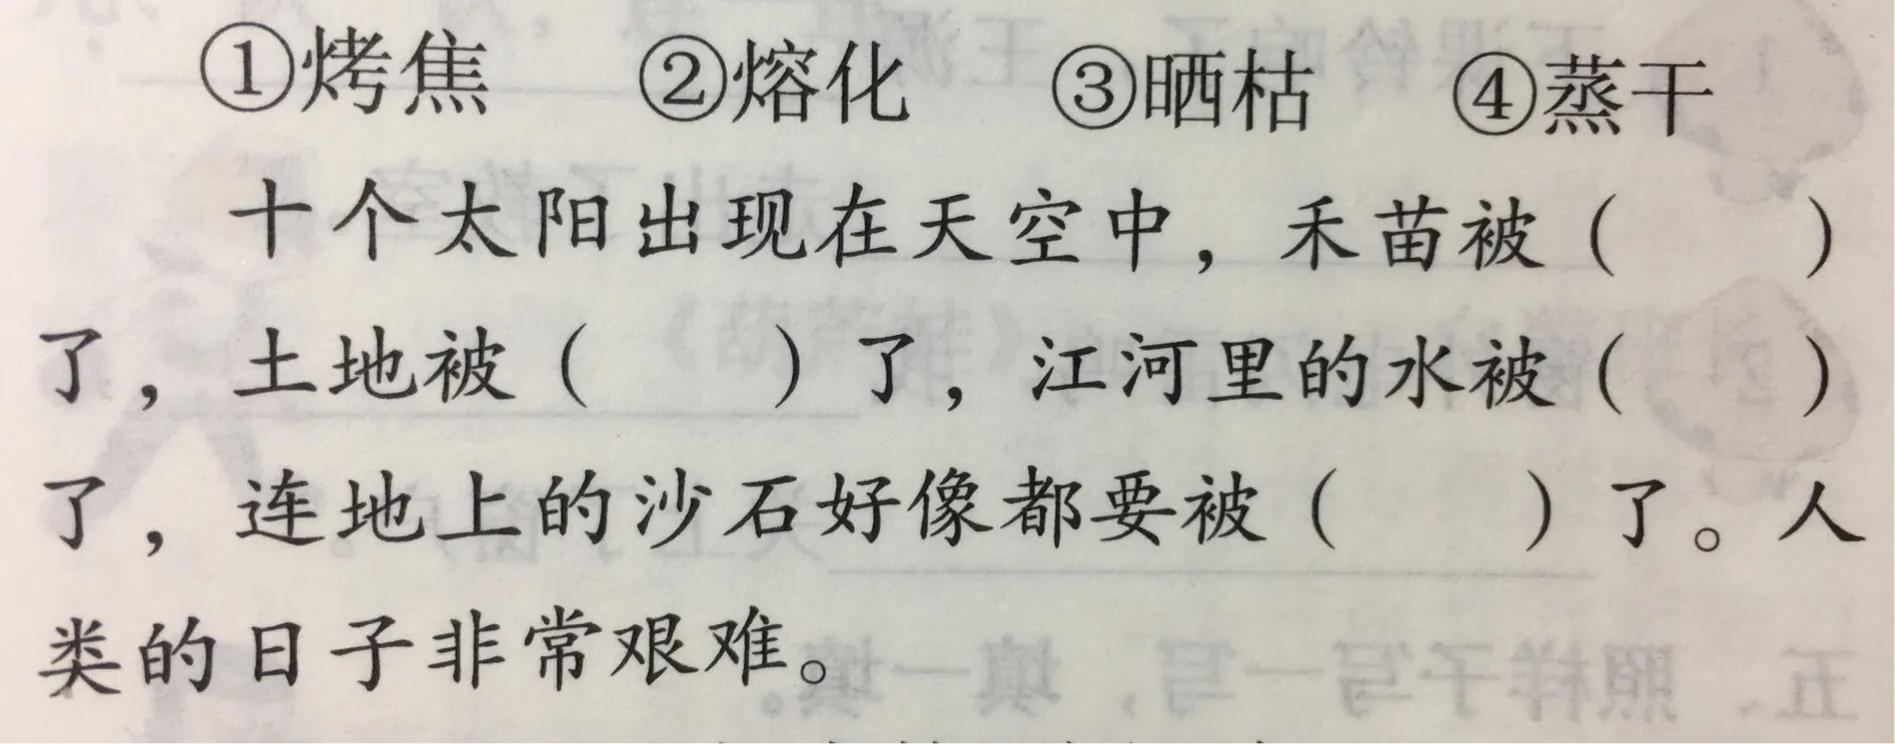 ①烤焦 ②熔化 ③晒枯 ④蒸干
十个太阳出现在天空中，禾苗被（ ）
了，土地被（ ）了，江河里的水被（ ）
了，连地上的沙石好像都要被（ ）了。人
类的日子非常艰难。
五、照样子写一写，填一填。